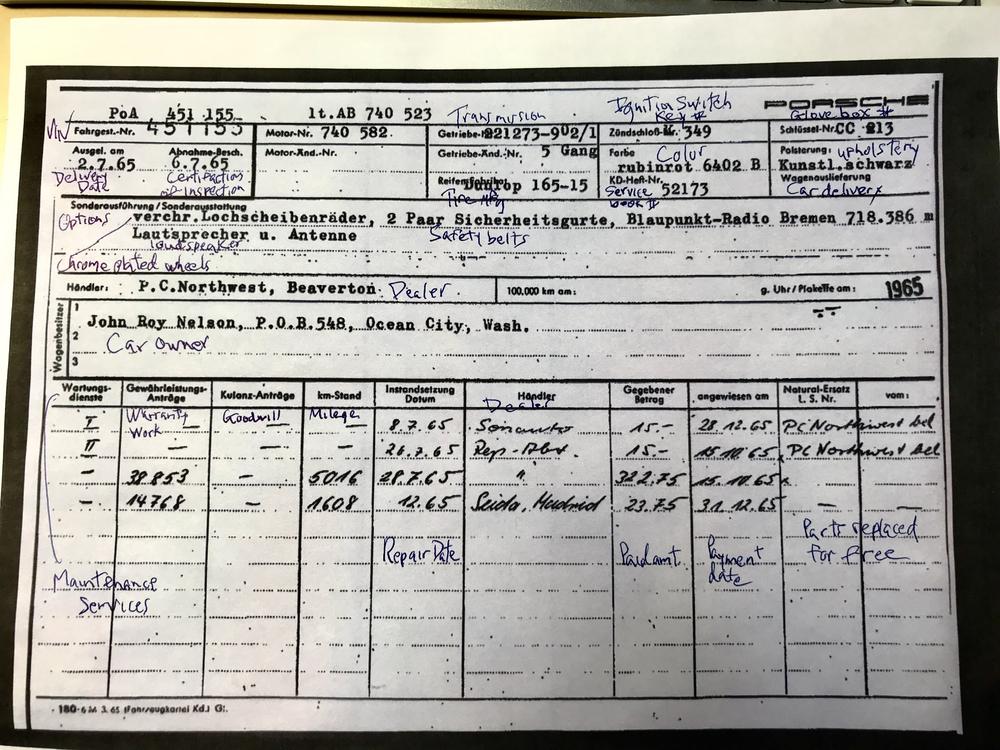 PoA 451 155 lt. AB 740 523 Transmission Ignition Switch Key # PORSCHE Glove box #
VIN Fahrgest.-Nr. 451155 Motor-Nr. 740 582. Getriebe-Nr. 221273-902/1 Zündschloß-Nr. K 349 Schlüssel-Nr. CC 213
Ausgel. am Abnahme-Besch. Motor-Änd.-Nr. Getriebe-Änd.-Nr. 5 Gang Farbe Color Polsterung: upholstery
2.7.65 6.7.65 rubinrot 6402 B Kunstl.schwarz
Delivery Date Certification of Inspection Reifenfabrikat Dunlop 165-15 KD-Heft-Nr. 52173 Wagenauslieferung
Tire Mfg Service book # Car delivery
Sonderausführung / Sonderausstattung
Options verchr.Lochscheibenräder, 2 Paar Sicherheitsgurte, Blaupunkt-Radio Bremen 718.386 m
Lautsprecher u. Antenne Safety belts
loudspeaker
Chrome plated wheels
Händler: P.C.Northwest, Beaverton Dealer 100.000 km am: g. Uhr / Plakette am: 1965
Wagenbesitzer
1 John Roy Nelson, P.O.B.548, Ocean City, Wash.
2 Car Owner
3
Wartungsdienste Gewährleistungs-Anträge Kulanz-Anträge km-Stand Instandsetzung Datum Händler Gegebener Betrag angewiesen am Natural-Ersatz L. S. Nr. vom:
Warranty Work Goodwill Mileage Dealer
I — — — 8.7.65 15.- 28.12.65 PC Northwest bel
II — — — 15.- 15.10.65 PC Northwest bel
— 38853 — 5016 28.7.65 " 322.75 15.10.65
— 14768 — 1608 12.65 Seida, Madrid 23.75 31.12.65 — —
Repair Date Paid amt. Payment date Parts replaced for free
Maintenance Services
180 3.65 (Fahrzeugkartei Kd.)